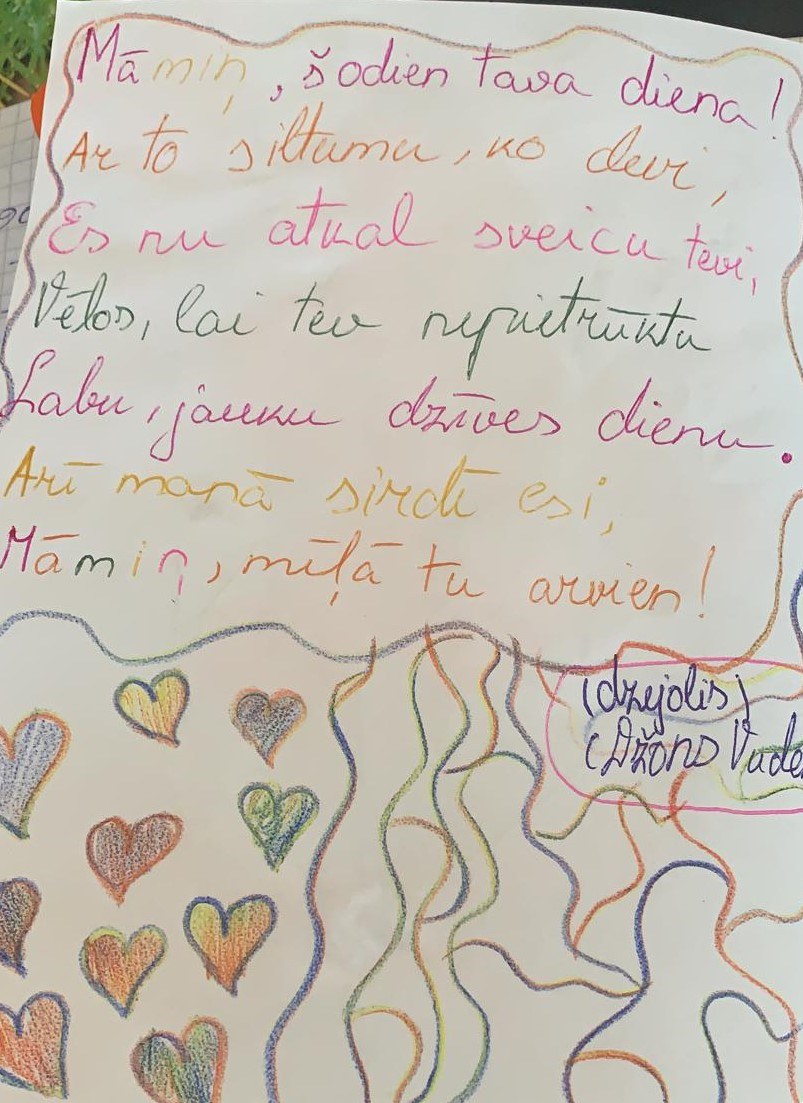 Māmiņ, šodien tava diena!
Ar to siltumu, ko devi,
Es nu atkal sveicu tevi,
Vēlos, lai tev nepietrūktu
Labu, jauku dzīves dienu.
Arī manā sirdī esi,
Māmiņ, mīļā tu arvien!
(dzejolis)
(Džons